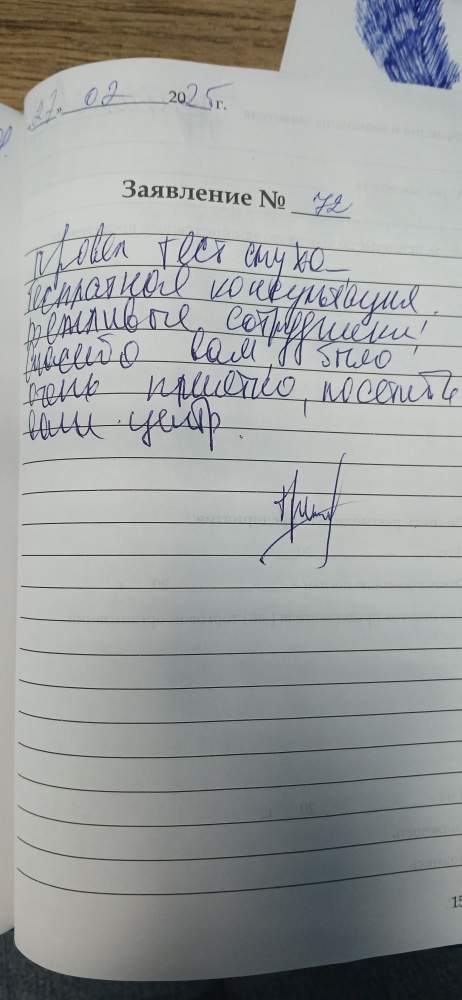 27. 02 2025 г.
Заявление № 72
Провел тест слуха
бесплатная консультация.
вежливые сотрудники!
спасибо вам, было
очень приятно, посетить
ваш центр.
15